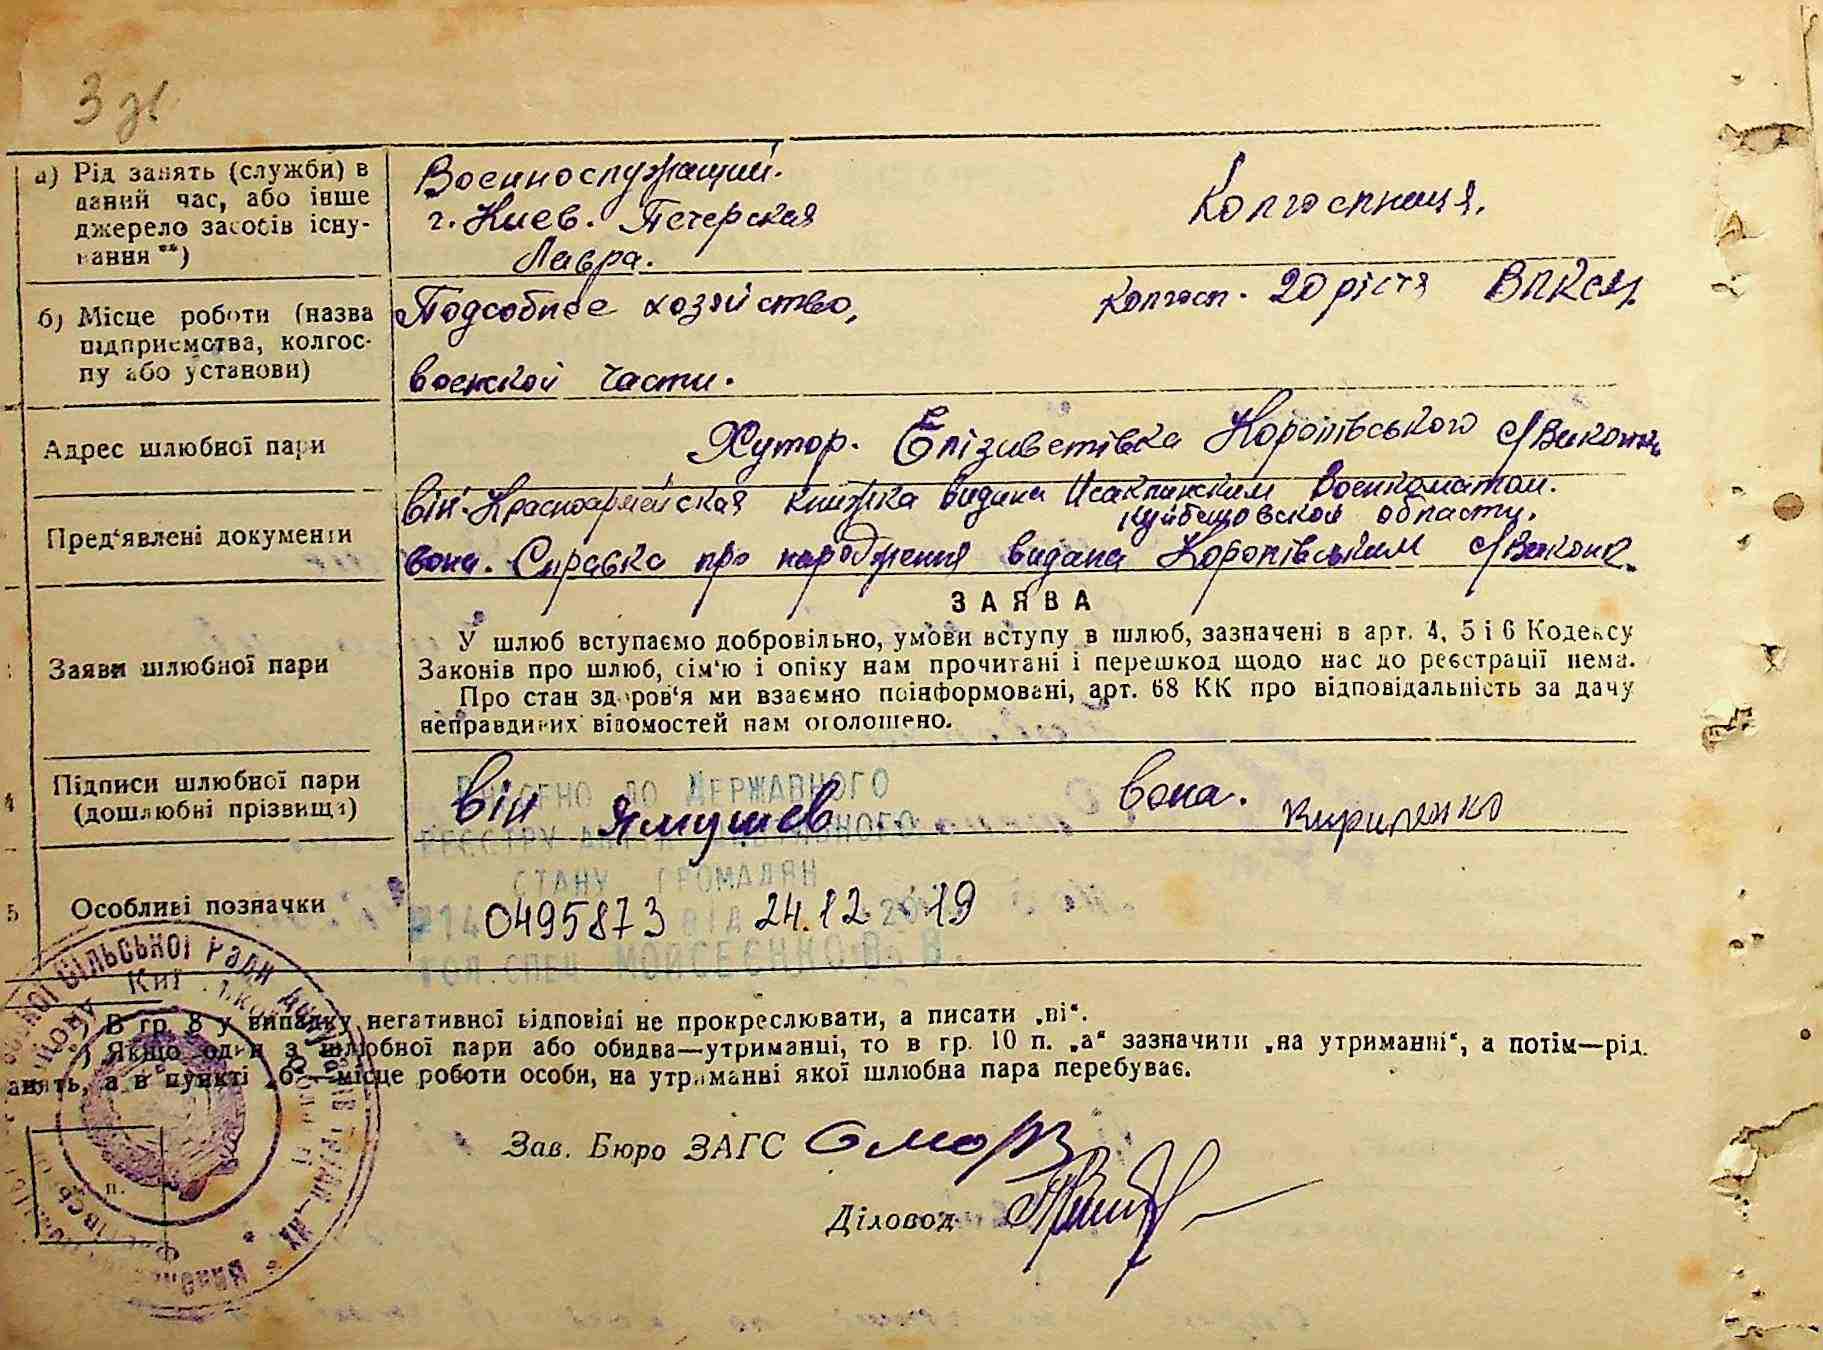 3 зв.
а) Рід занять (служби) в
даний час, або інше
джерело засобів існу-
вання **)
Военнослужащий.
г. Киев. Печерская
Лавра.
Колгоспниця.
б) Місце роботи (назва
підприємства, колгос-
пу або установи)
Подсобное хозяйство,
воєнской части.
Колгосп. 20 ріття ВЛКСМ.
Адрес шлюбної пари
Хутор. Єлізиветівка Коропівського с/Виконк.
Пред'явлені документи
він. Красноармейская книжка видана Исаклинским Военкоматом.
Куйбешовской области.
вона. Справка про народження видана Коропівським с/Виконк.
ЗАЯВА
Заяви шлюбної пари
У шлюб вступаємо добровільно, умови вступу в шлюб, зазначені в арт. 4, 5 і 6 Кодексу
Законів про шлюб, сім'ю і опіку нам прочитані і перешкод щодо нас до реєстрації нема.
Про стан здоров'я ми взаємно поінформовані, арт. 68 КК про відповідальність за дачу
неправдивих відомостей нам оголошено.
4
Підписи шлюбної пари
(дошлюбні прізвища)
він Ямушев
вона. Кириленко
ВНЕСЕНО ДО ДЕРЖАВНОГО
РЕЄСТРУ АКТІВ ЦИВІЛЬНОГО
СТАНУ ГРОМАДЯН
5
Особливі позначки
0495873 ВІД 24.12.2019
ГОЛ. СПЕЦ. МОЙСЕЄНКО В. В.
*) В гр. 8 у випадку негативної відповіді не прокреслювати, а писати „ні“.
**) Якщо один з шлюбної пари або обидва—утриманці, то в гр. 10 п. „а“ зазначити „на утриманні“, а потім—рід
занять, а в пункті „б“—місце роботи особи, на утриманні якої шлюбна пара перебуває.
Зав. Бюро ЗАГС
Діловод
п.